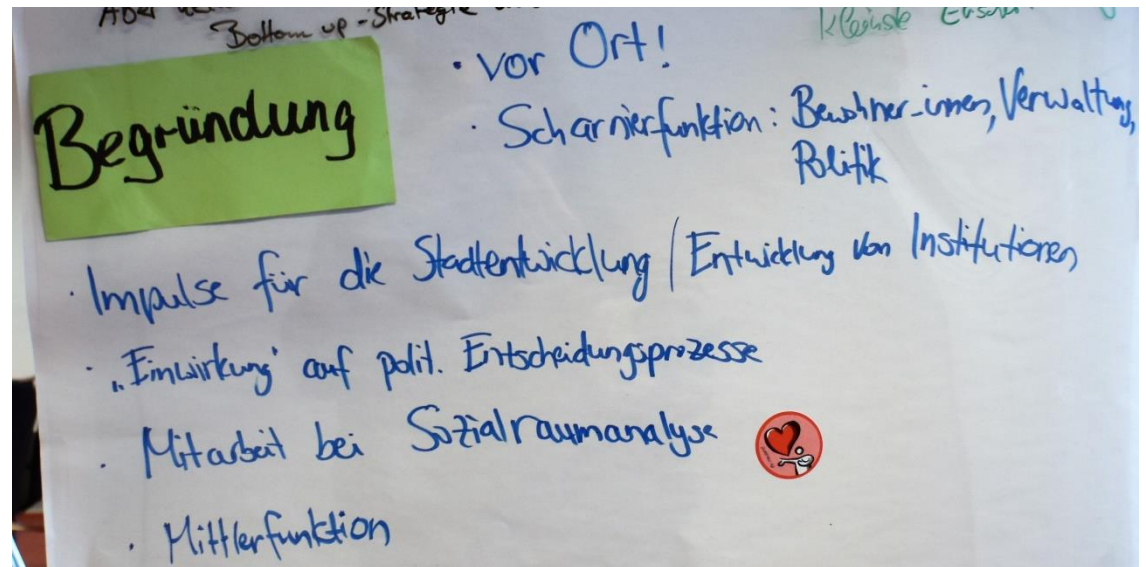 Aber
Bottom up - Strategie
kleinste
· vor Ort!
Begründung
· Scharnierfunktion: Bewohner_innen, Verwaltung,
Politik
· Impulse für die Stadtentwicklung / Entwicklung von Institutionen
· „Einwirkung' auf polit. Entscheidungsprozesse
· Mitarbeit bei Sozialraumanalyse
· Mittlerfunktion